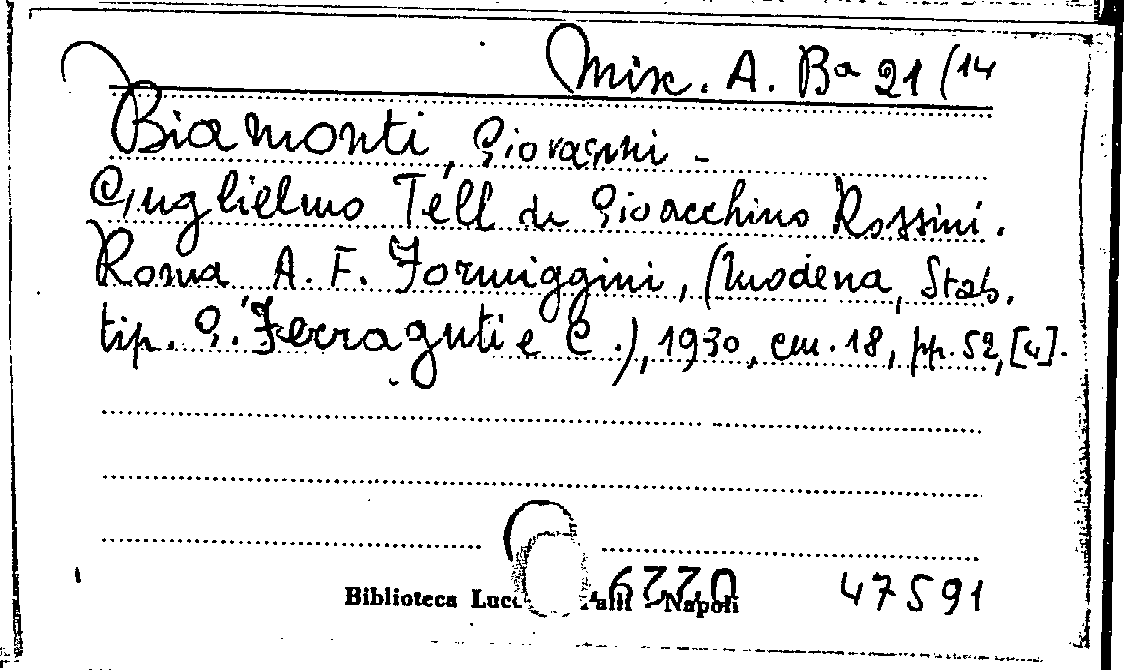 Misc. A. Ba 21 (14
Biamonti, Giovanni -
Guglielmo Tell di Gioacchino Rossini.
Roma A. F. Formiggini, (Modena, Stab.
tip. G. Ferraguti e C.), 1930, cm. 18, pp. 52, [4].
Biblioteca Napoli
47591